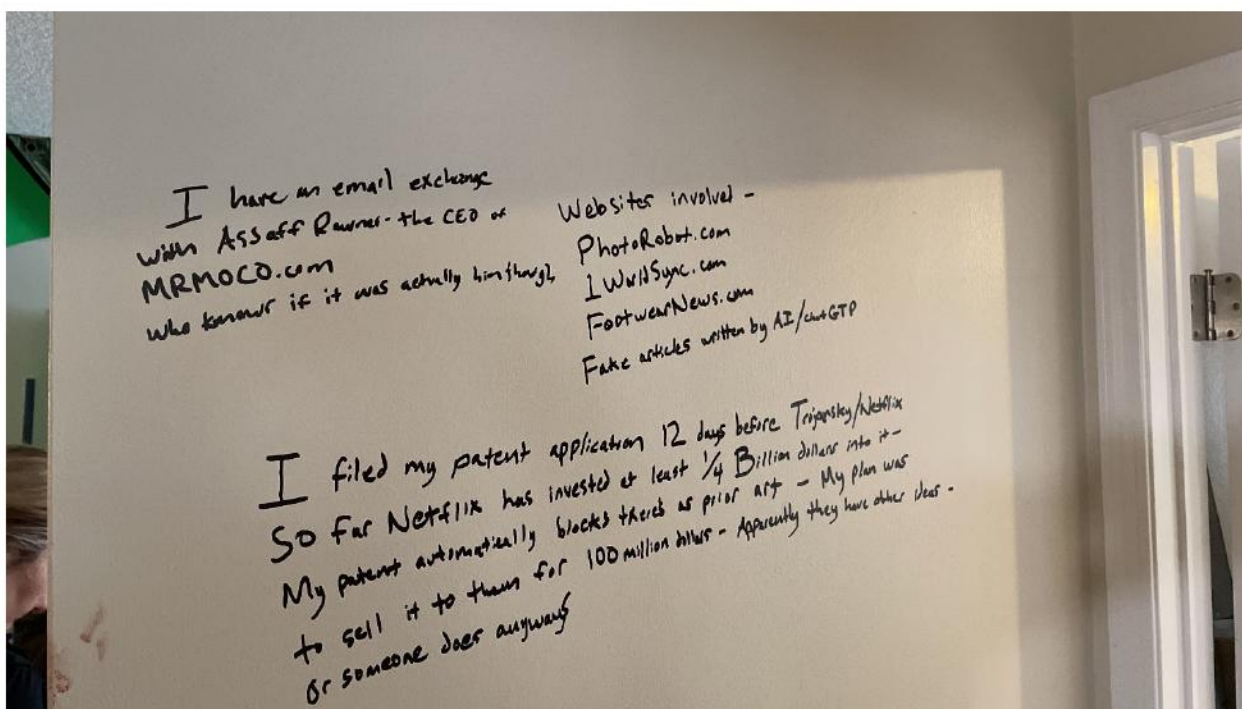 I have an email exchange
with Assaff Rawner - the CEO of
MRMOCO.com
who knows if it was actually him though
Websites involved -
PhotoRobot.com
1WorldSync.com
FootwearNews.com
Fake articles written by AI/chatGTP
I filed my patent application 12 days before Trojansky/Netflix
So far Netflix has invested at least 1/4 Billion dollars into it -
My patent automatically blocks there's as prior art - My plan was
to sell it to them for 100 million dollars - Apparently they have other ideas -
Or someone does anyways